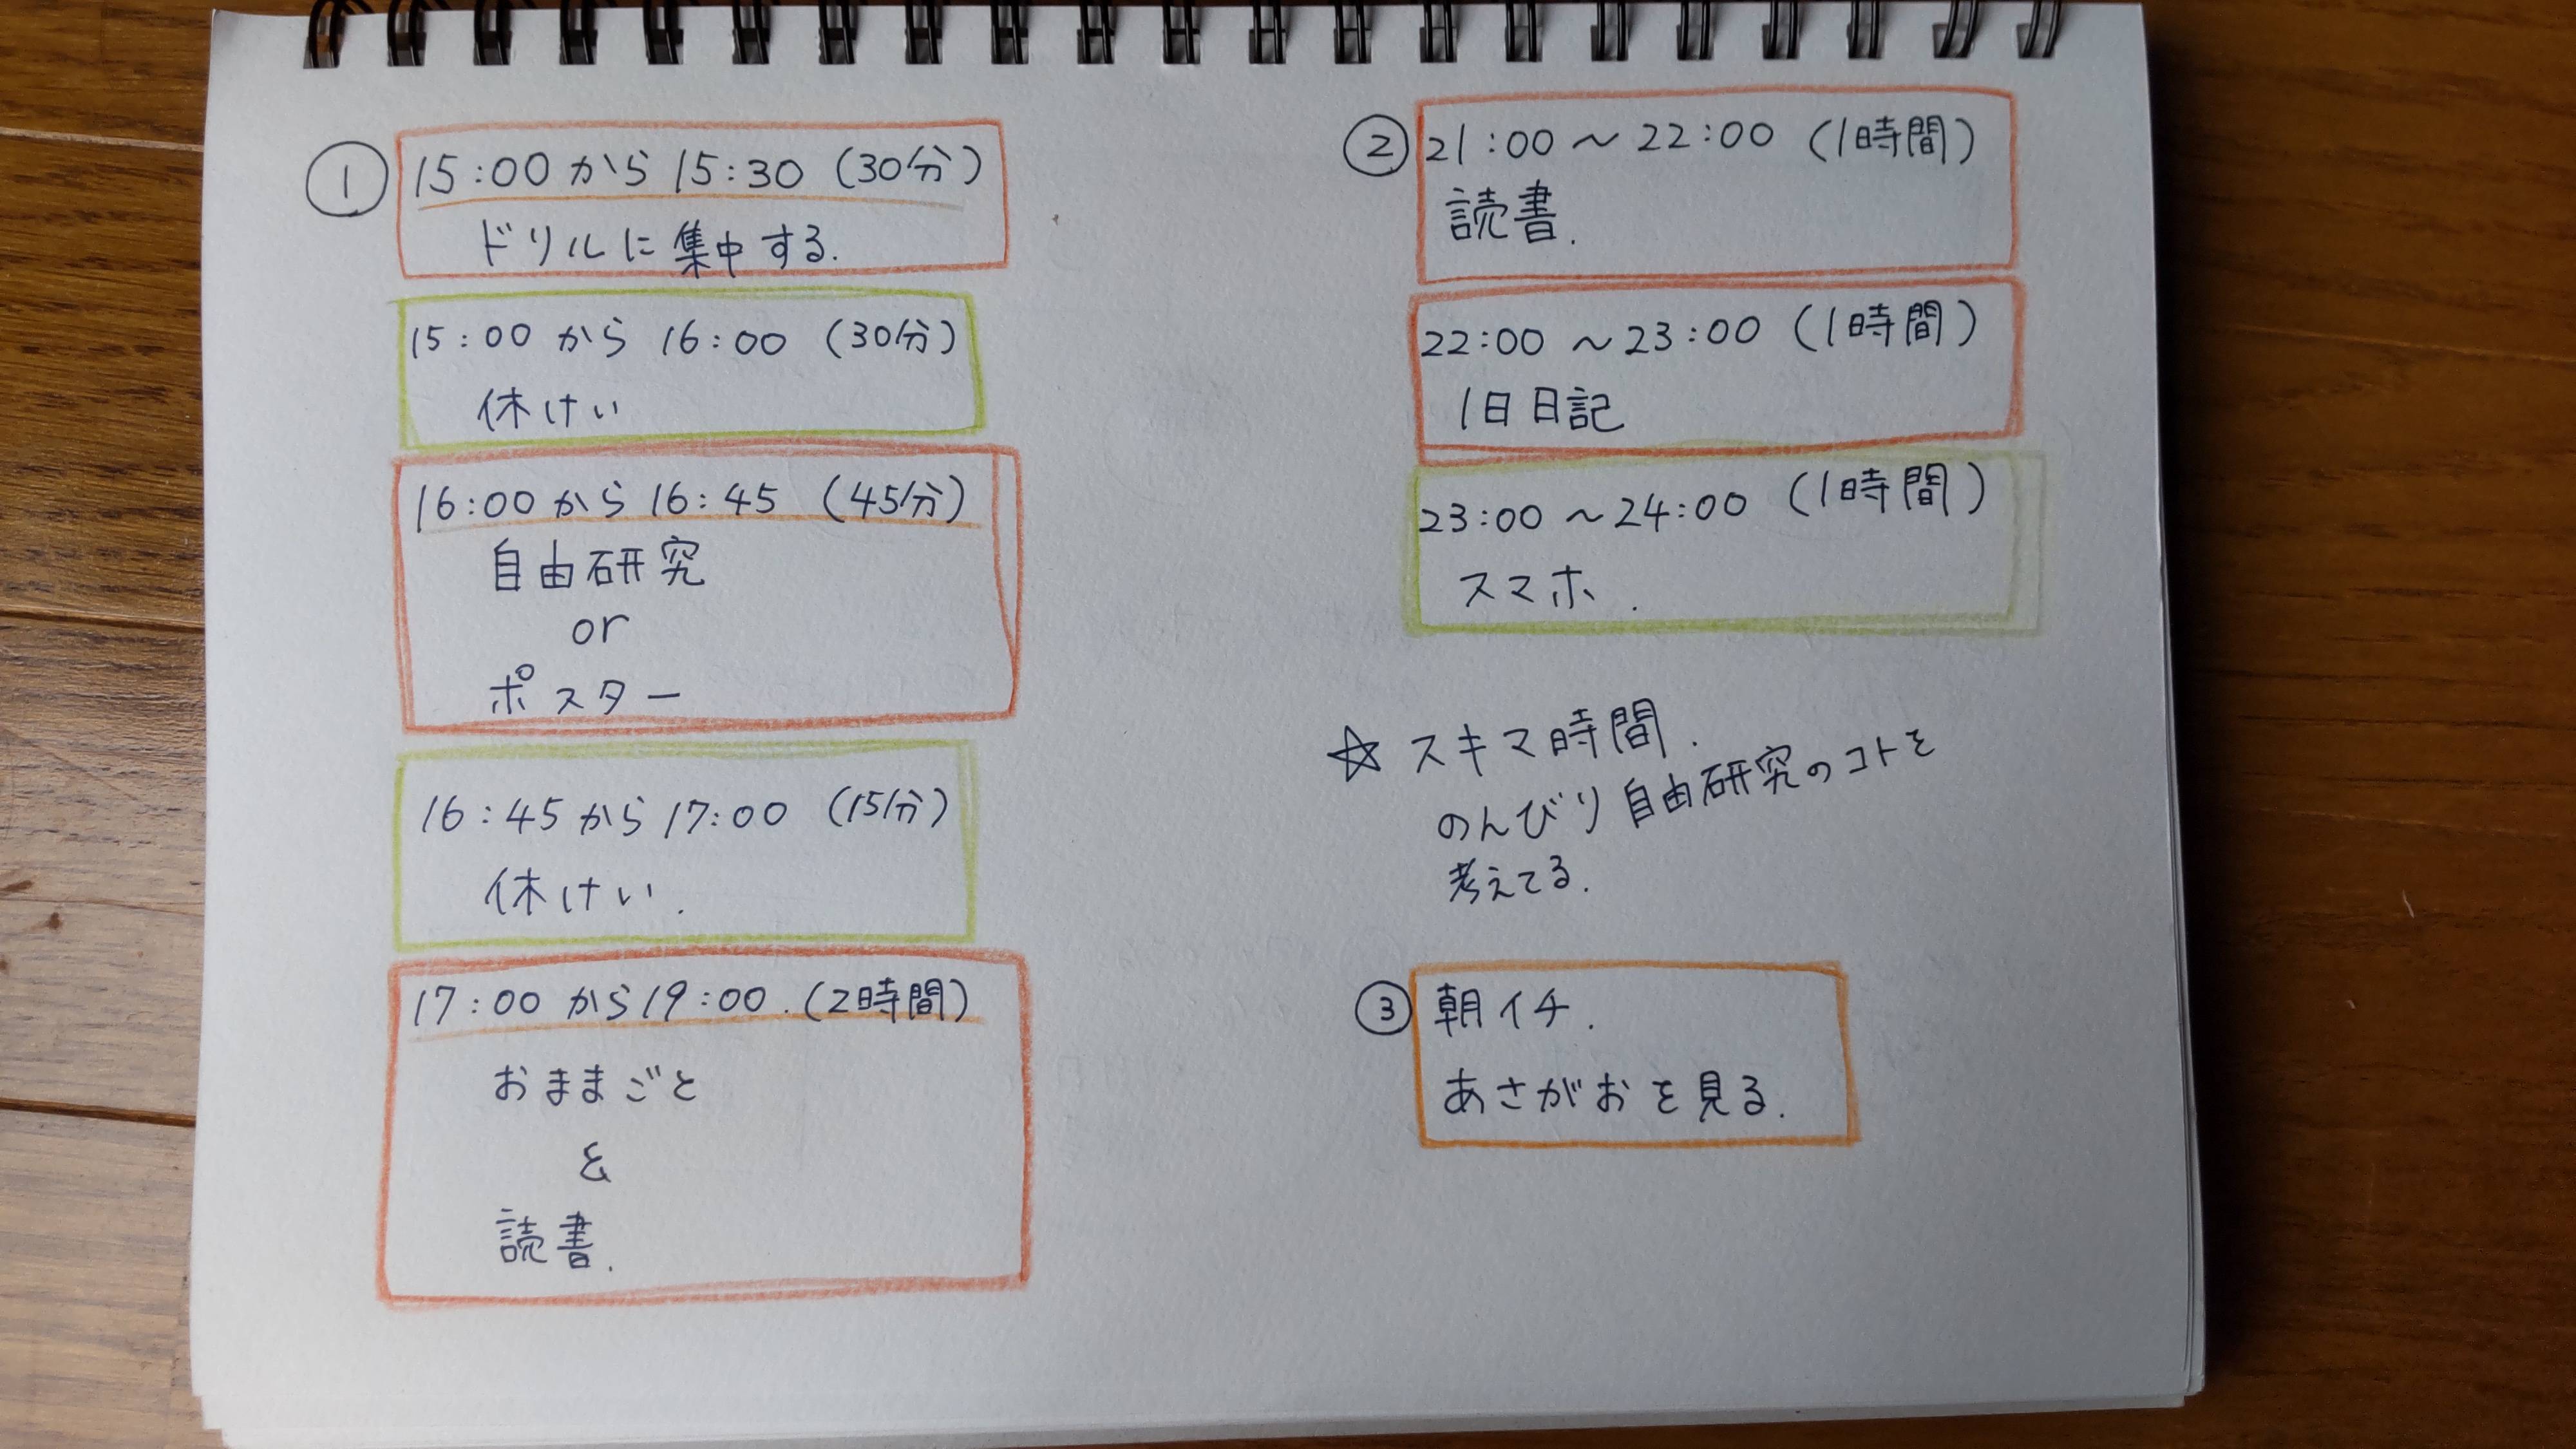 ① 15:00 から 15:30 (30分)
ドリルに集中する.
15:00 から 16:00 (30分)
休けい
16:00 から 16:45 (45分)
自由研究
or
ポスター
16:45 から 17:00 (15分)
休けい.
17:00 から 19:00. (2時間)
おままごと
&
読書.
② 21:00 ～ 22:00 (1時間)
読書.
22:00 ～ 23:00 (1時間)
1日日記
23:00 ～ 24:00 (1時間)
スマホ.
☆ スキマ時間.
のんびり自由研究のコトを
考えてる.
③ 朝イチ.
あさがおを見る.